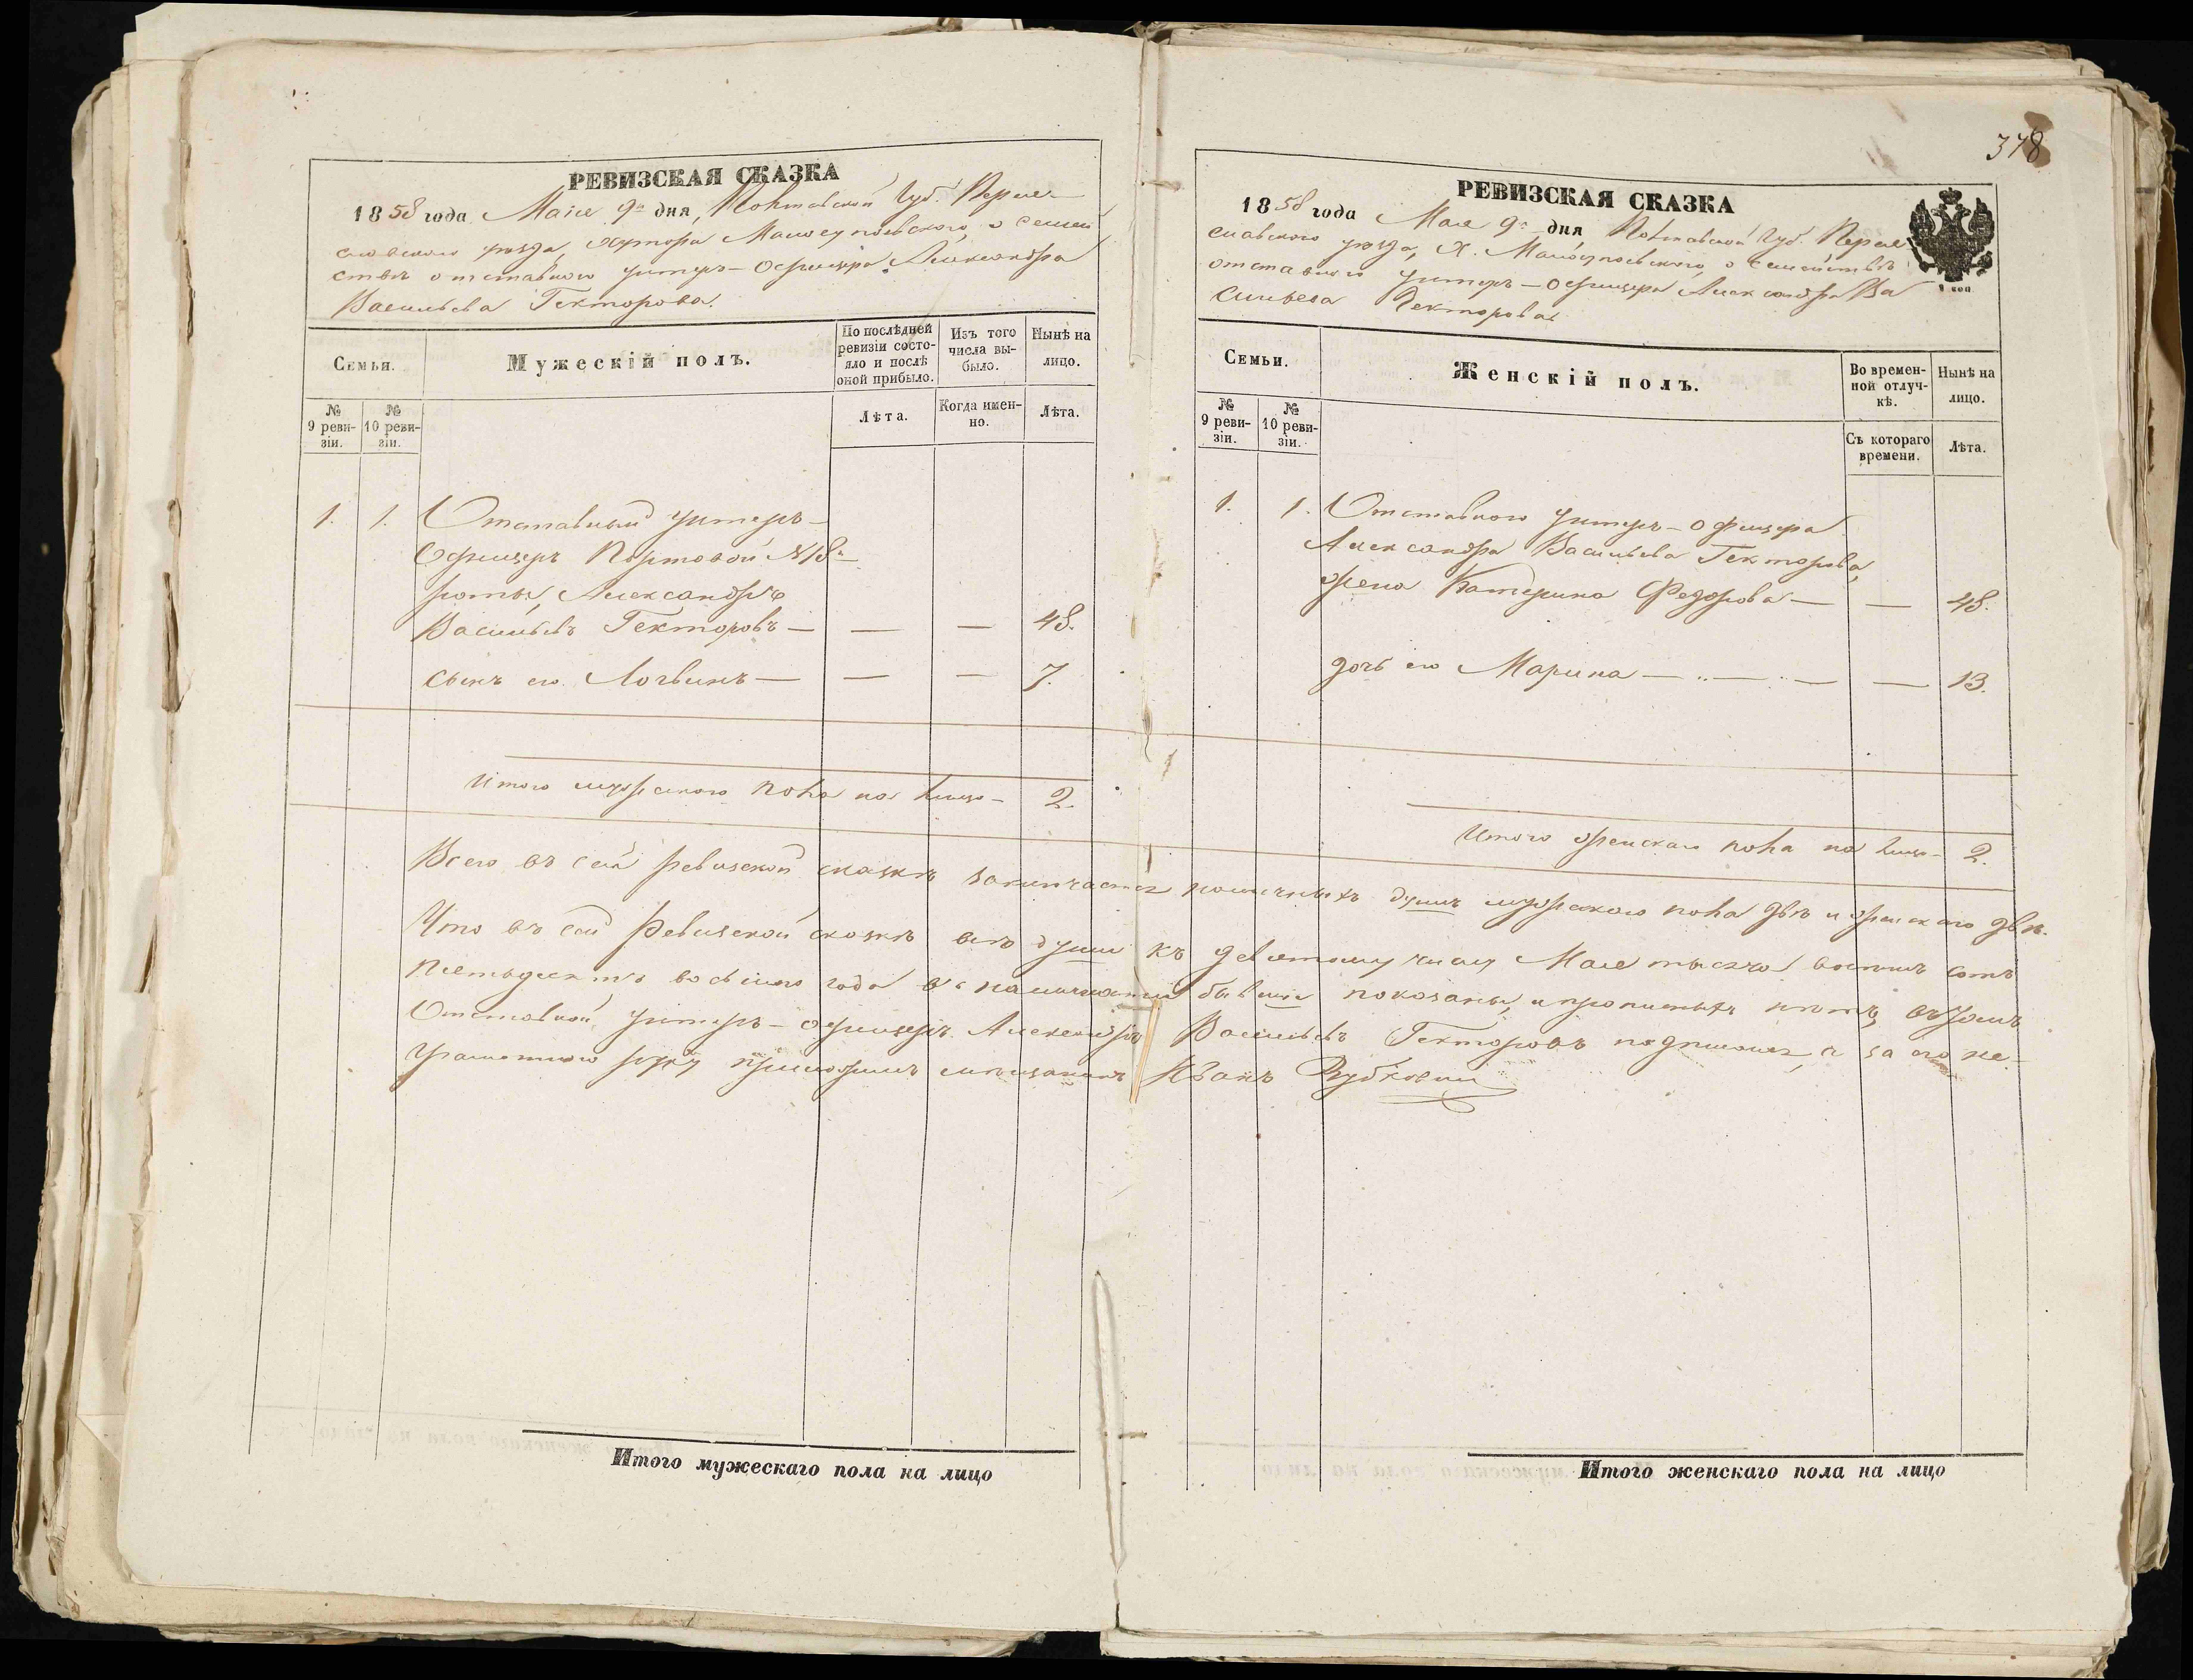 РЕВИЗСКАЯ СКАЗКА
1858 года Маія 9го дня, Полтавской Губ. Перея-
славского уезда, Хутора о семей
ствѣ отставного унтеръ-Офицера Александра
Васильева Гекторова.
Семьи.
Мужескій полъ.
По послѣдней ревизіи состо-
яло и послѣ оной прибыло.
Изъ того числа вы-
было.
Нынѣ на лицо.
№ 9 реви-
зіи.
№ 10 реви-
зіи.
Лѣта.
Когда имен-
но.
Лѣта.
1. 1. Отставный унтеръ-
Офицеръ Портовой №18й
роты, Александръ
Васильевъ Гекторовъ — — — 48.
сынъ его Логвинъ — — — 7.
Итого мужескаго пола на лицо — 2.
378
РЕВИЗСКАЯ СКАЗКА
1858 года Мая 9го дня Полтавской Губ. Перея
славского уезда, Х. о семействѣ
отставного унтеръ-офицера Александра Ва
сильева Гекторова
Семьи.
Женскій полъ.
Во времен-
ной отлуч-
кѣ.
Нынѣ на лицо.
№ 9 реви-
зіи.
№ 10 реви-
зіи.
Съ котораго времени.
Лѣта.
1. 1. Отставного унтеръ-офицера
Александра Васильева Гекторова,
жена Катерина Федорова — — 48.
дочь его Марина — — — 13.
Итого женскаго пола на лицо — 2.
Всего въ сей ревизской сказкѣ заключается наличныхъ душъ мужескаго пола двѣ и женскаго двѣ.
Что въ сей Ревизской сказкѣ всѣ души къ девятому числу Мая тысяча восемь сотъ
пятьдесятъ восьмого года въ наличности бывшіе показаны, и прописныхъ нѣтъ, въ томъ
Отставной унтеръ-офицеръ Александръ Васильевъ Гекторовъ подписался, а за его не-
грамотного руку приложилъ мѣщанинъ Иванъ
Итого мужескаго пола на лицо
Итого женскаго пола на лицо